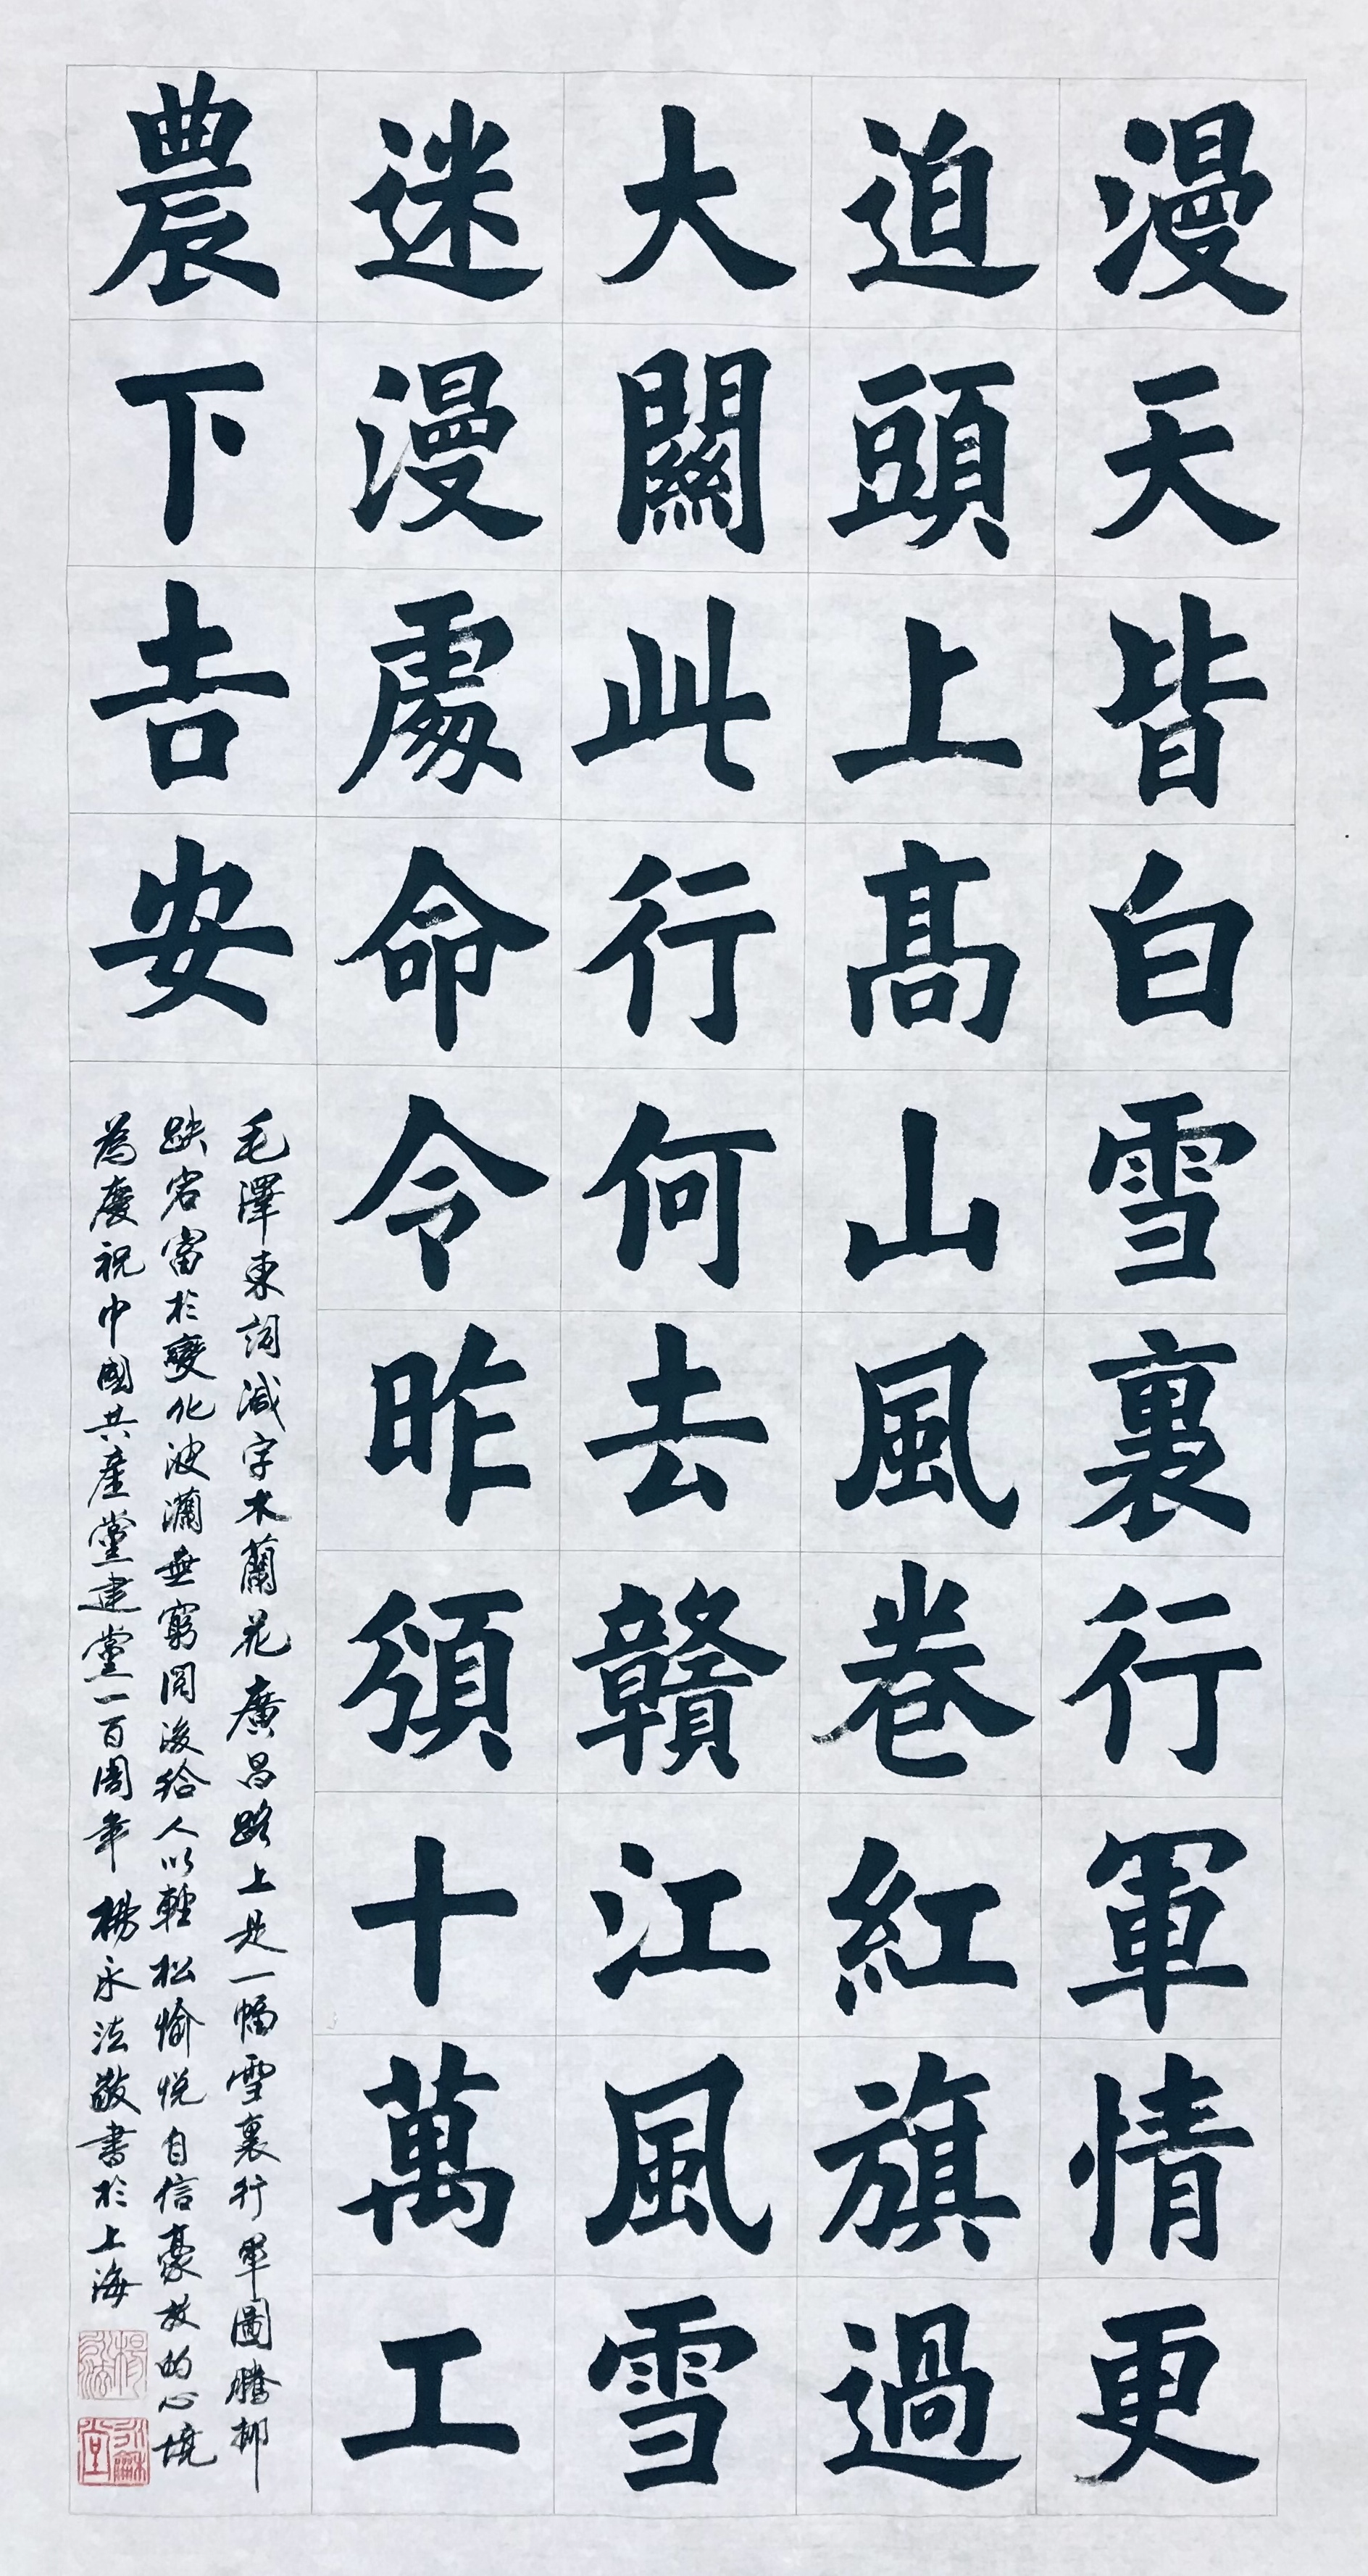 漫天皆白雪裏行軍情更
迫頭上高山風卷紅旗過
大關此行何去贛江風雪
迷漫處命令昨頒十萬工
農下吉安
毛澤東詞減字木蘭花廣昌路上是一幅雪裏行軍圖騰挪
跌宕富於變化波瀾無窮同後給人以輕松愉悅自信豪放的心境
為慶祝中國共產黨建黨一百周年楊永法敬書於上海